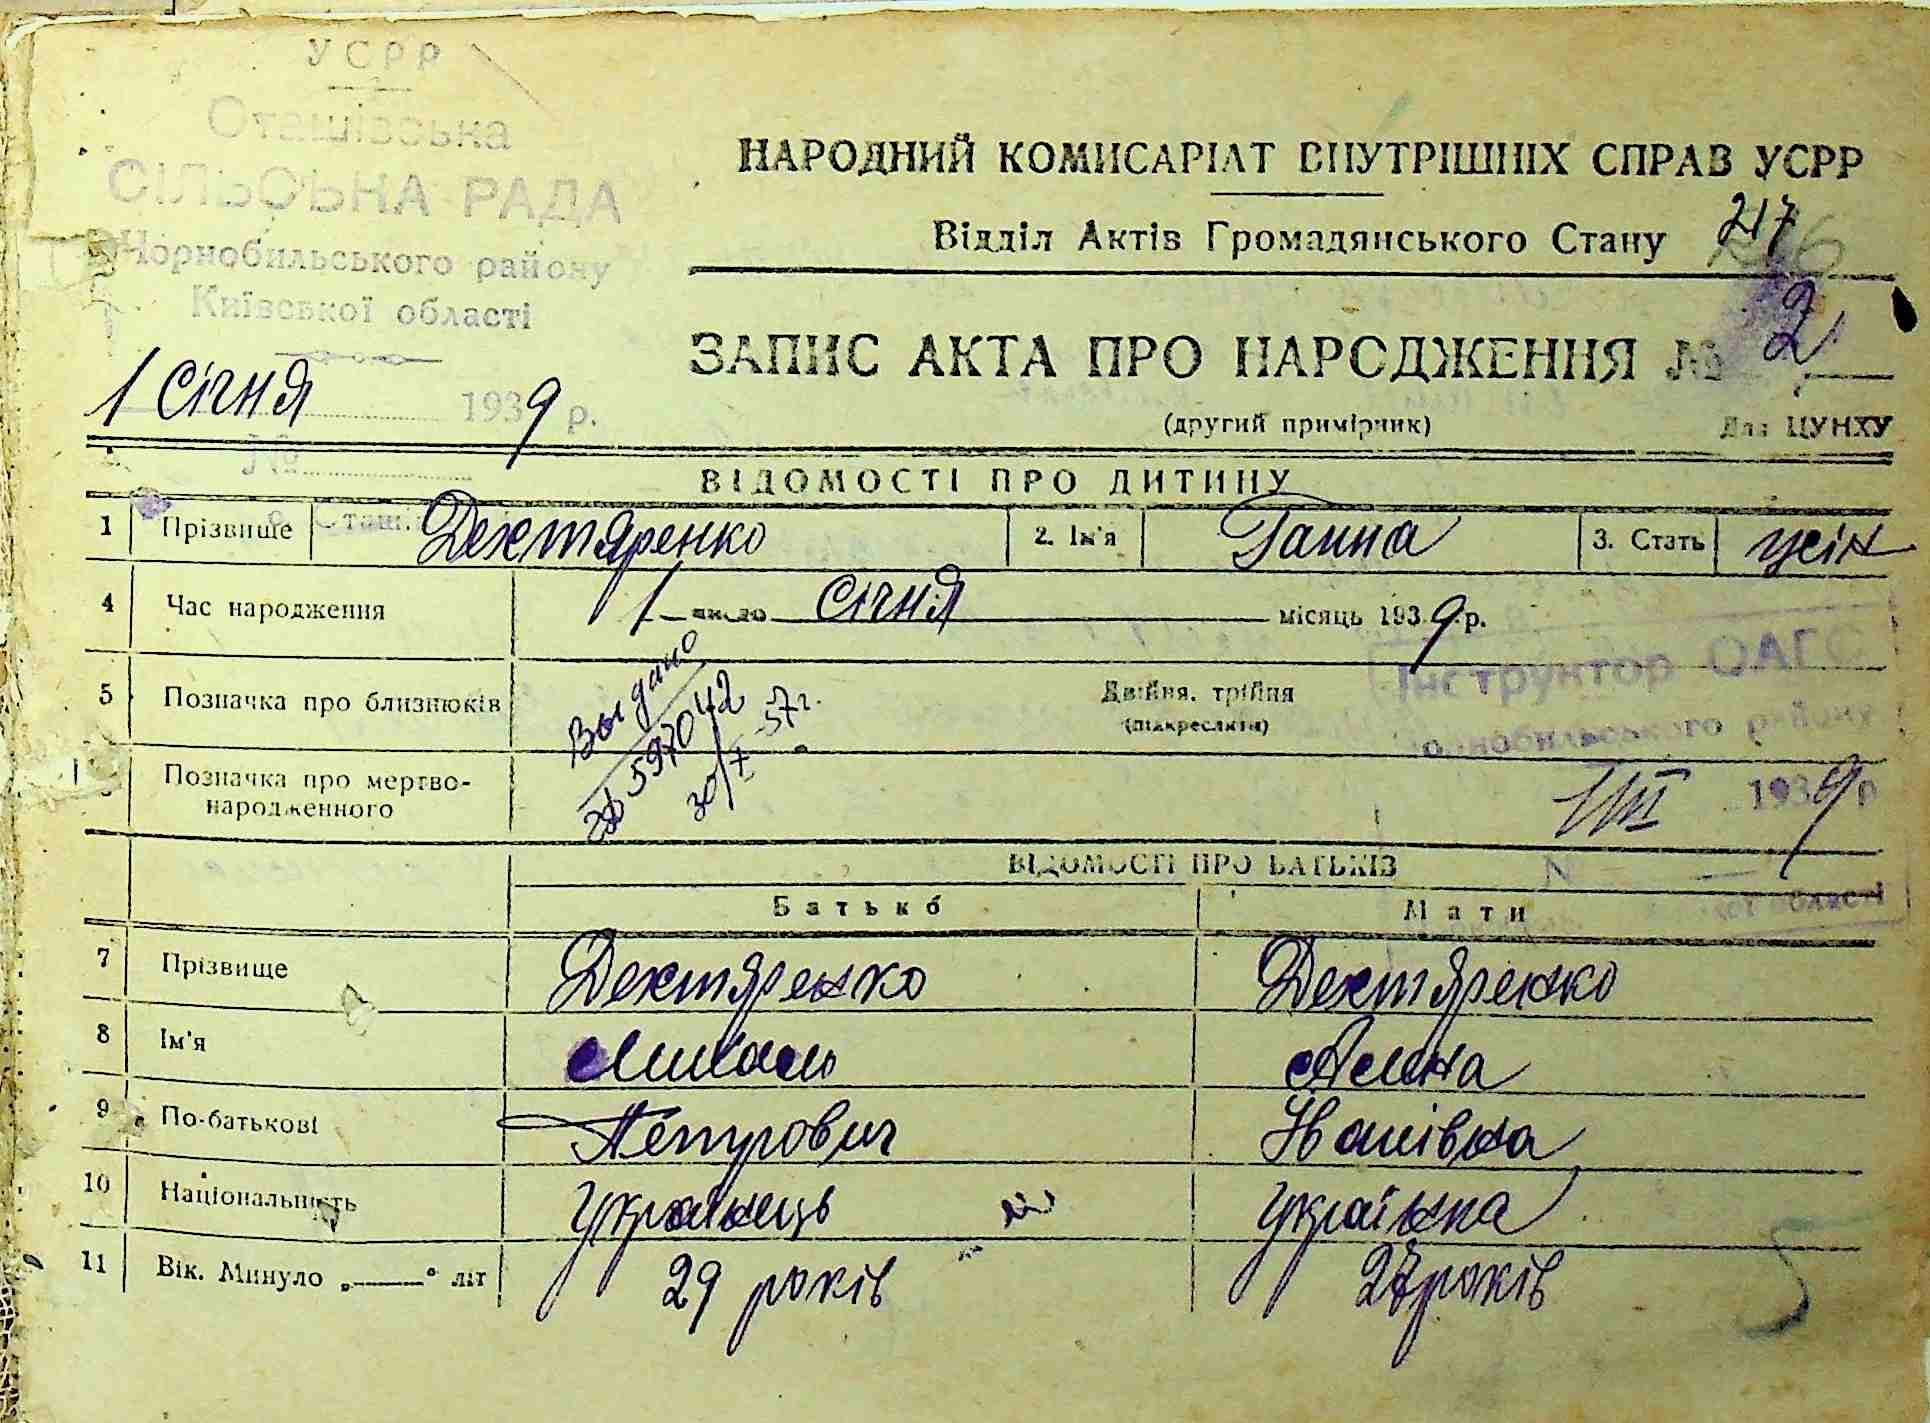 УСРР
Оташівська
СІЛЬСЬКА РАДА
Чорнобильського району
Київської області
1 січня 1939 р.
№
НАРОДНИЙ КОМИСАРІАТ ВНУТРІШНІХ СПРАВ УСРР
Відділ Актів Громадянського Стану
217
ЗАПИС АКТА ПРО НАРОДЖЕННЯ № 2
(другий примірник) Для ЦУНХУ
ВІДОМОСТІ ПРО ДИТИНУ
1 Прізвище Дехтяренко 2. Ім'я Ганна 3. Стать жін
4 Час народження 1 число січня місяць 1939 р.
5 Позначка про близнюків Двійня, трійня
(підкреслити)
Выдано
597042
30/X-57г.
Інструктор ОАГС
Чорнобильського району
1/III 1939 р
області
Позначка про мертво-
народженного
ВІДОМОСТІ ПРО БАТЬКІВ
Батько Мати
7 Прізвище Дехтяренко Дехтяренко
8 Ім'я Микола Алена
9 По-батькові Петрович
10 Національність Українець Українка
11 Вік. Минуло „——“ літ 29 років 27 років
5